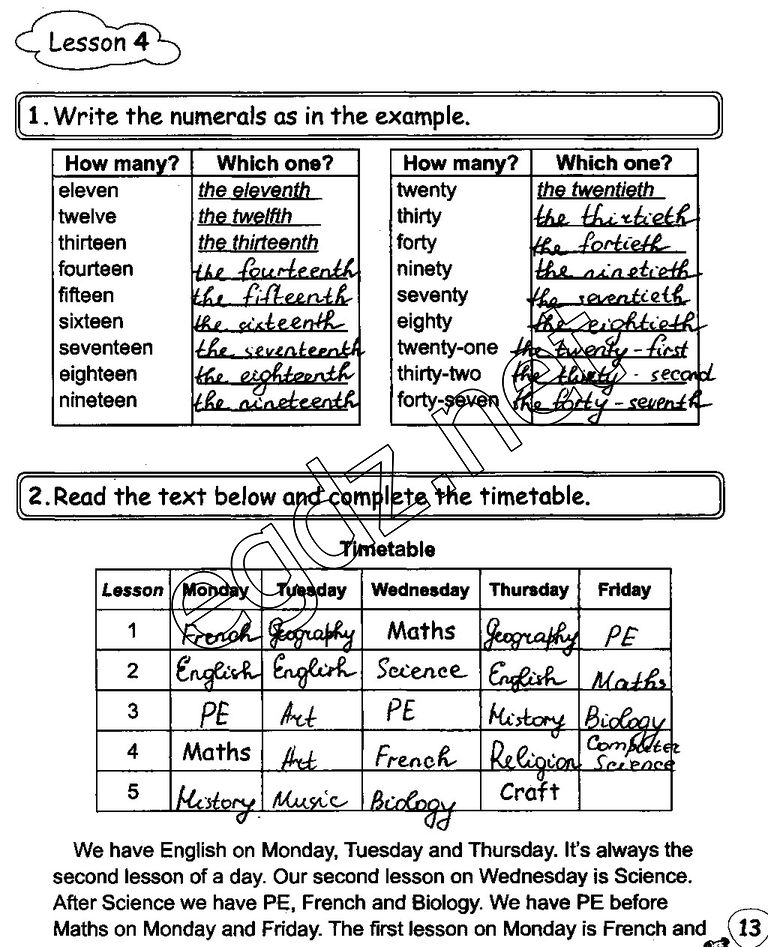 Lesson 4
1. Write the numerals as in the example.
How many? Which one? How many? Which one?
eleven the eleventh twenty the twentieth
twelve the twelfth thirty the thirtieth
thirteen the thirteenth forty the fortieth
fourteen the fourteenth ninety the ninetieth
fifteen the fifteenth seventy the seventieth
sixteen the sixteenth eighty the eightieth
seventeen the seventeenth twenty-one the twenty-first
eighteen the eighteenth thirty-two the thirty-second
nineteen the nineteenth forty-seven the forty-seventh
2. Read the text below and complete the timetable.
egdz.net
Timetable
Lesson Monday Tuesday Wednesday Thursday Friday
1 French Geography Maths Geography PE
2 English English Science English Maths
3 PE Art PE History Biology
4 Maths Art French Religion Computer Science
5 History Music Biology Craft
We have English on Monday, Tuesday and Thursday. It's always the
second lesson of a day. Our second lesson on Wednesday is Science.
After Science we have PE, French and Biology. We have PE before
Maths on Monday and Friday. The first lesson on Monday is French and
13